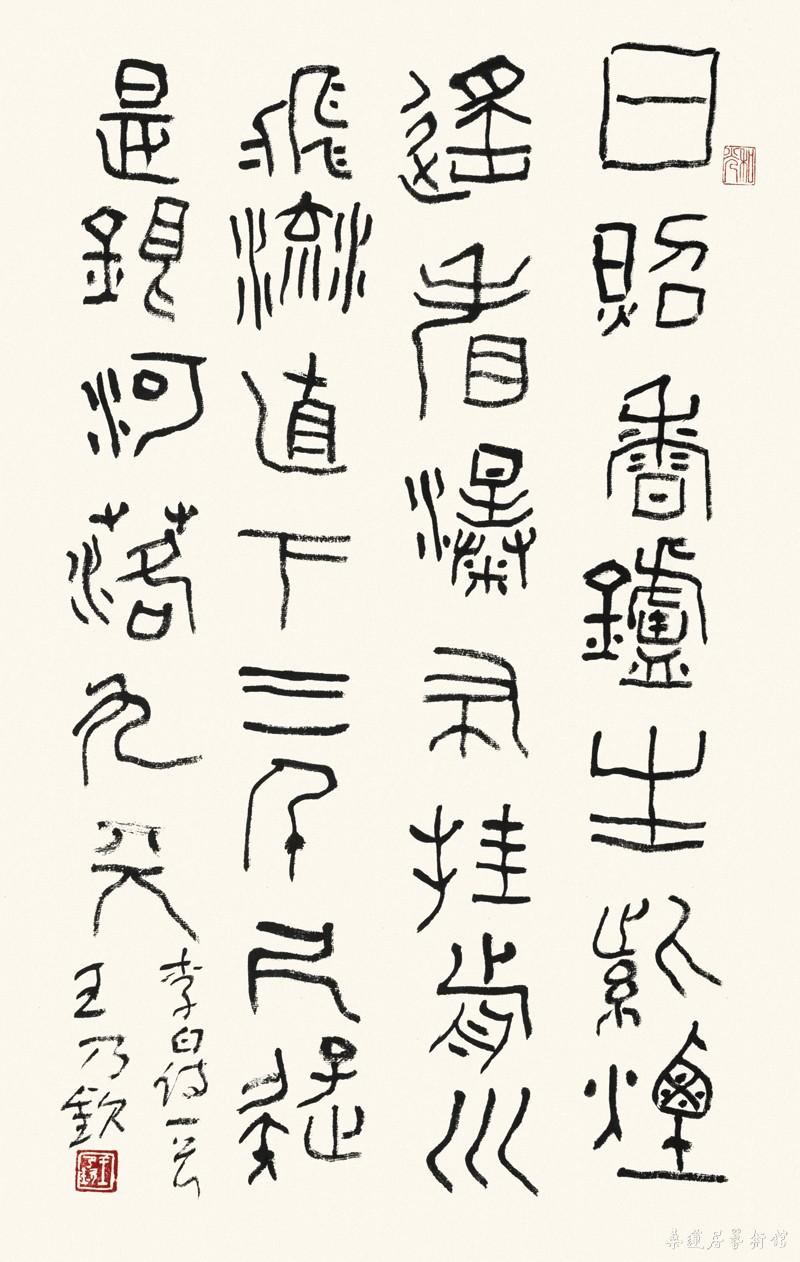 日照香鑪生紫煙
遙看瀑布挂前川
飛流直下三千尺疑
是銀河落九天
李白詩一首
王乃欽
桑蓮居藝術館